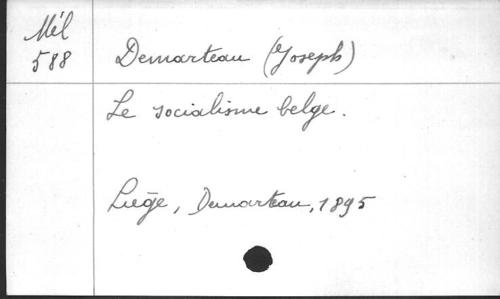 Mél
588
Demarteau (Joseph)
Le socialisme belge.
Liège, Demarteau, 1895